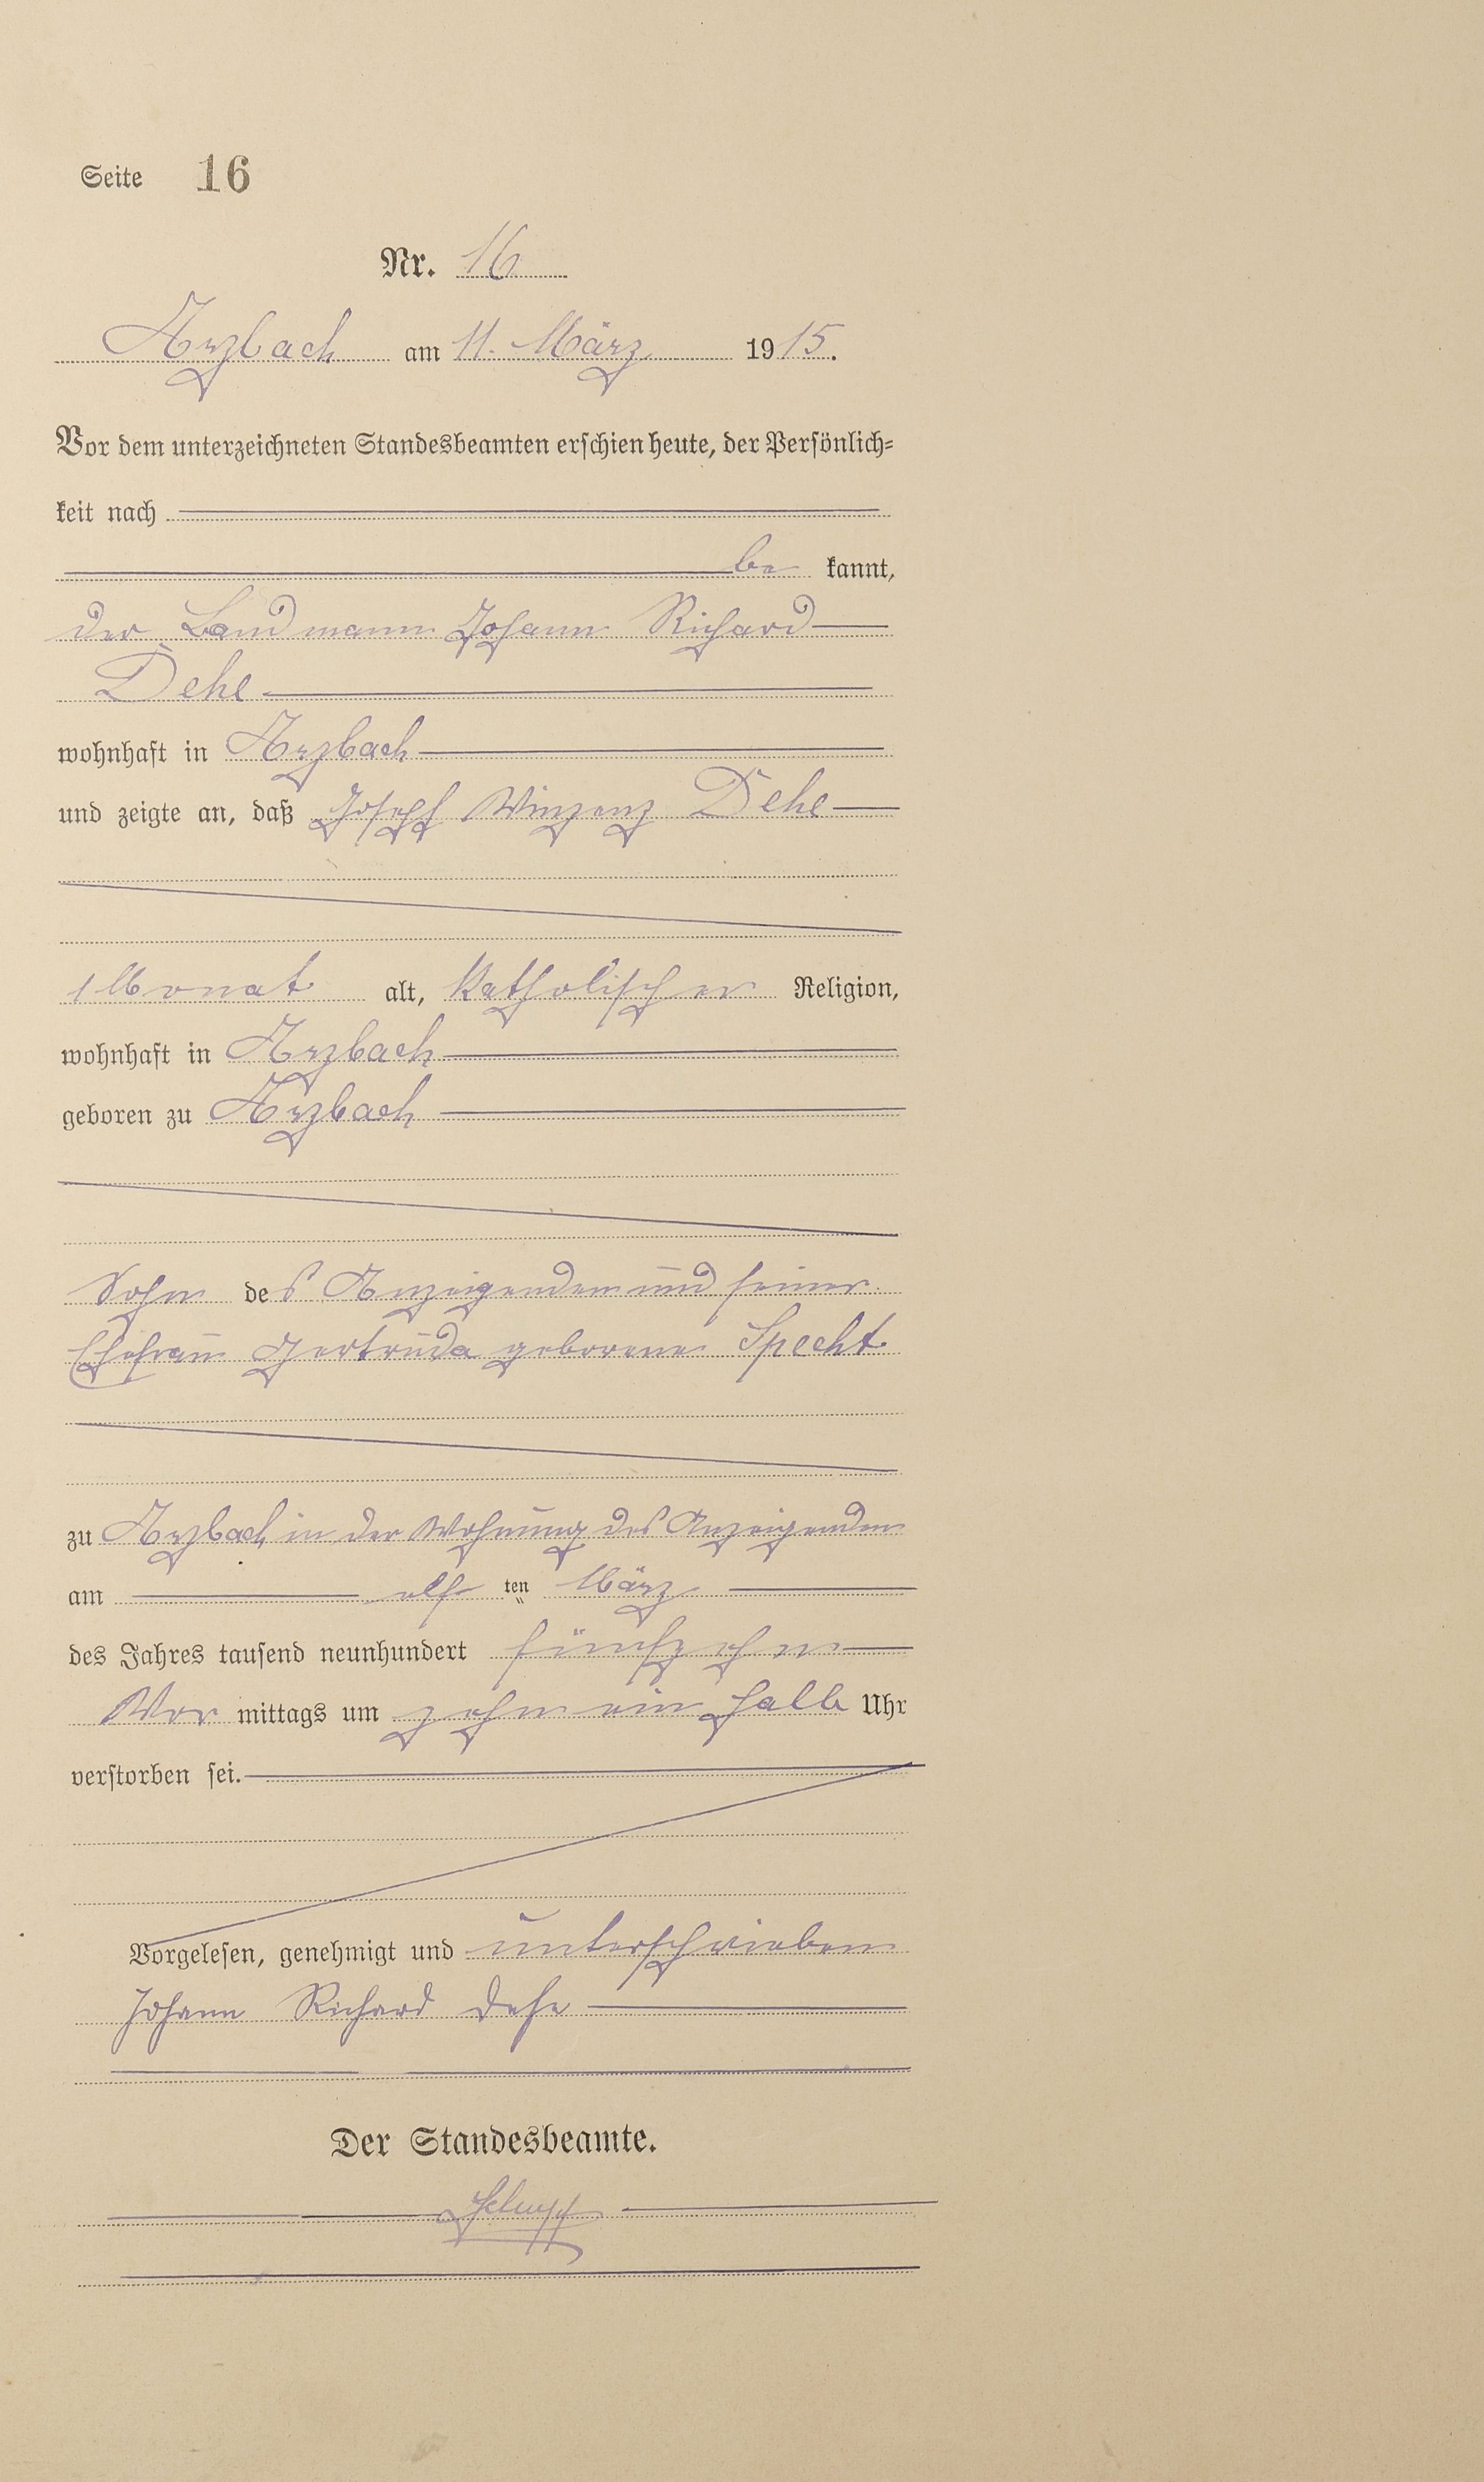 Seite 16
Nr. 16
Arzbach am 11. März 1915.
Vor dem unterzeichneten Standesbeamten erschien heute, der Persönlich-
keit nach
be kannt,
der Landmann Johann Richard
Dehe
wohnhaft in Arzbach
und zeigte an, daß Joseph Winzenz Dehe
1 Monat alt, Katholischer Religion,
wohnhaft in Arzbach
geboren zu Arzbach
Sohn des Anzeigenden und seiner
Ehefrau Gertruda geborene Specht
zu Arzbach in der Wohnung des Anzeigenden
am elf ten März
des Jahres tausend neunhundert fünfzehn
Vor mittags um zehn ein halb Uhr
verstorben sei.
Vorgelesen, genehmigt und unterschrieben
Johann Richard Dehe
Der Standesbeamte.